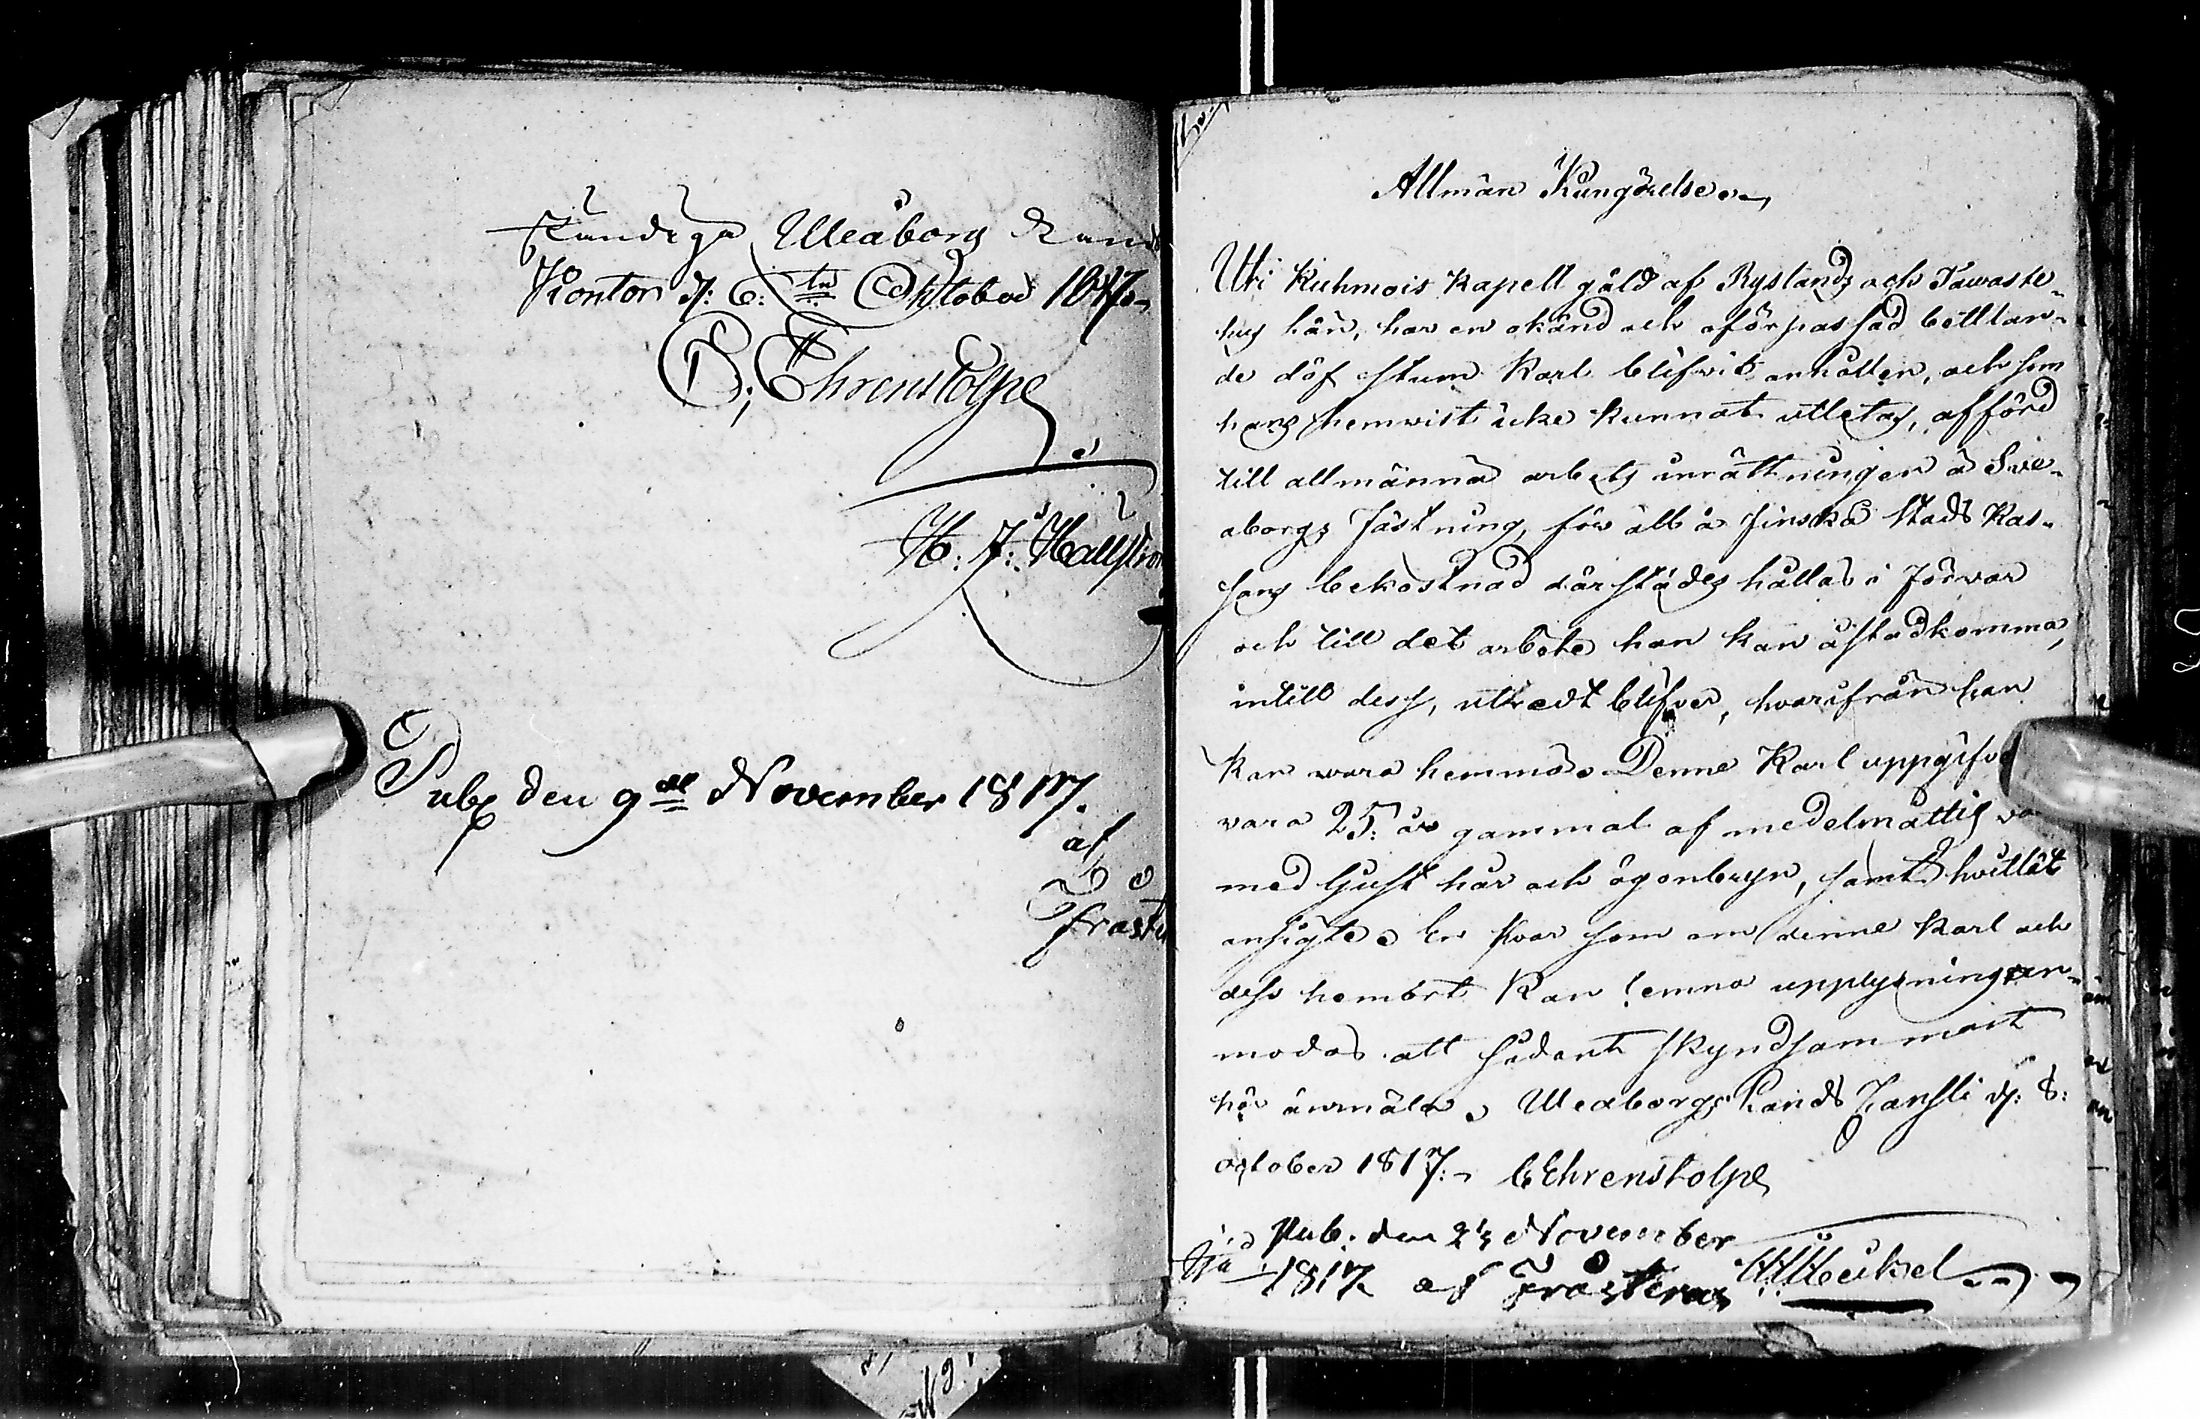 Uleåborg Lands
Kontor d: 6:te Oktober 1817.
C; Ehrenstolpe
H. J: Hällströ
Pub den 9de November 1817.
af
Froste
Allmän Kungörelse.
Uti Kuhmois Kapell gäld af Nyslands och Tawaste-
hus Län, har en okänd och oförpassad bettlan-
de döf stum Karl blifvit anhållen, och som
hans hemvist icke kunnat utletas, afförd
till allmänna arbets inrättningen å Svea-
aborgs fästning, för att å Finska Stads Kas-
sans bekostnad därstädes hållas i förvar
och till det arbete han kan åstadkomma,
intill dess, utredt blifver, hvarifrån han
kan vara hemma. Denne Karl uppgifve
vara 25: år gammal af medelmåttig
med ljust hår och ögonbryn, samt hvitlät
ansigte. En hvar som om denne Karl och
dess hemort Kan lemna upplysning an-
modas att sådant skyndsammast
här anmäla. Uleaborgs Lands Canslie d: 8:
october 1817. C Ehrenstolpe
Pub. den 23 November
1817 af Frosterus